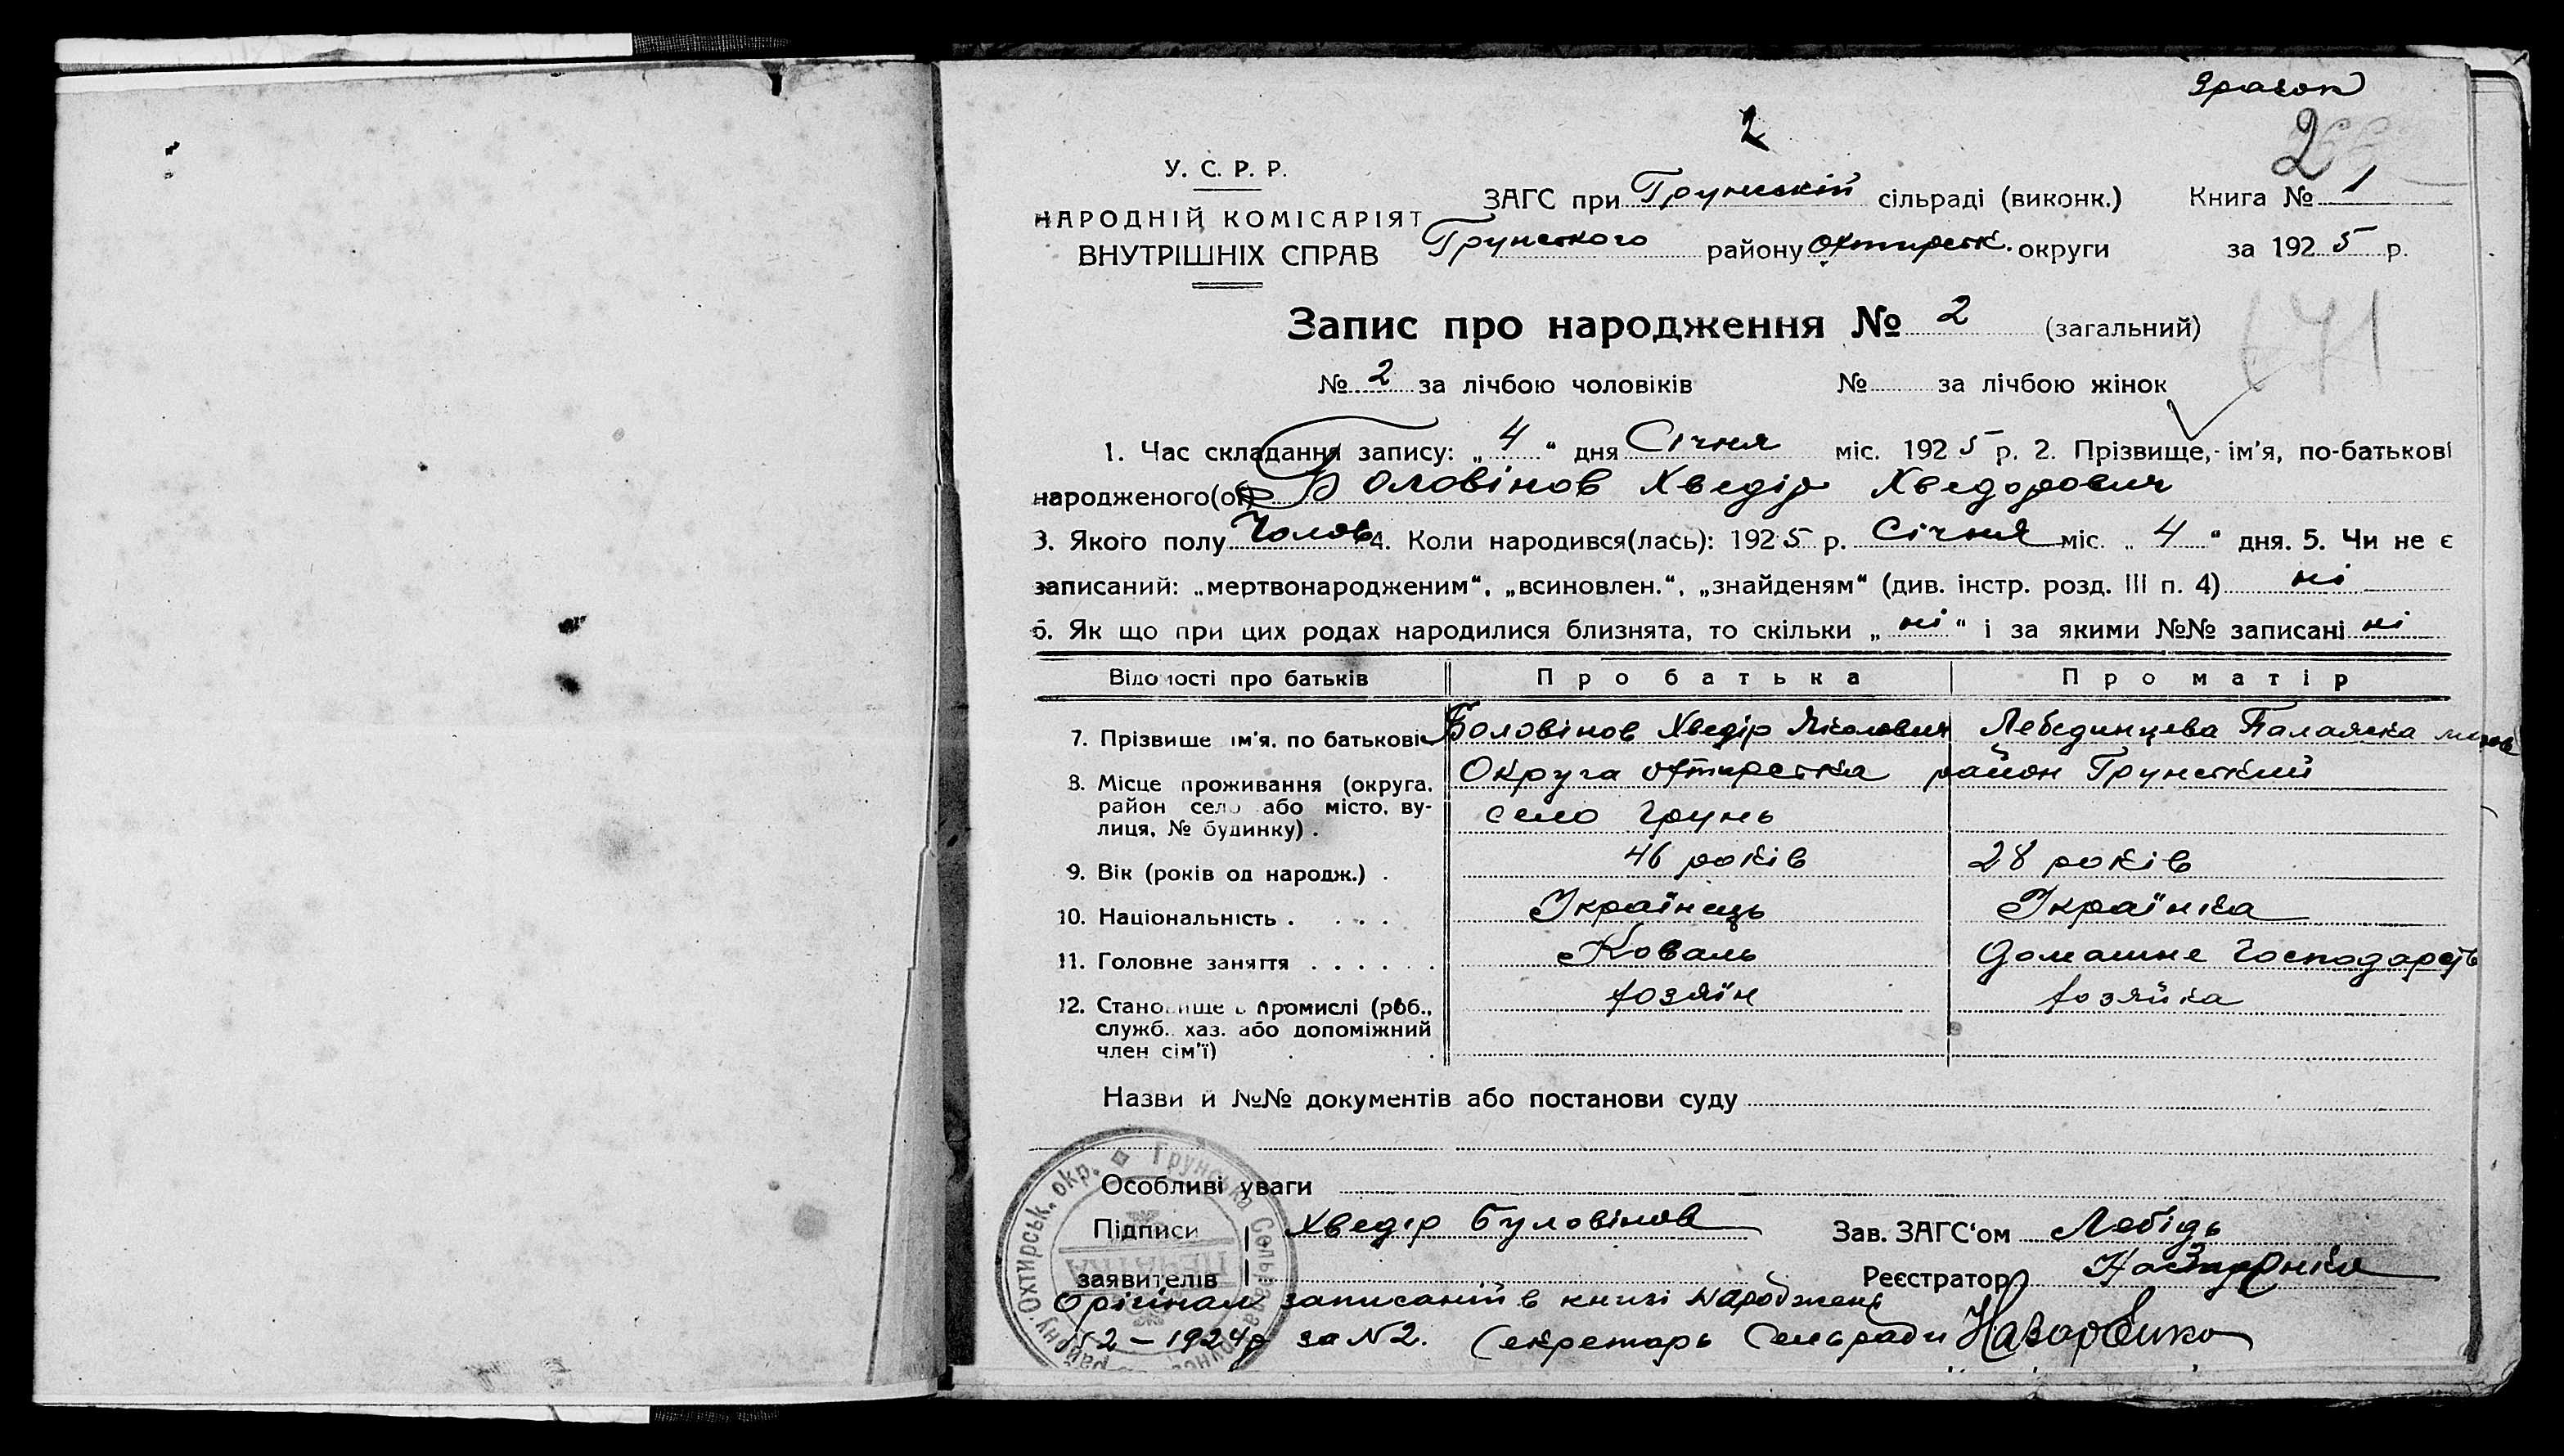 зразок
2
2
У. С. Р. Р.
НАРОДНІЙ КОМІСАРІЯТ
ВНУТРІШНІХ СПРАВ
ЗАГС при Грунській сільраді (виконк.) Книга № 1
Грунського району Охтирськ. округи за 1925 р.
Запис про народження № 2 (загальний)
671
№ 2 за лічбою чоловіків № за лічбою жінок
1. Час складання запису: „4“ дня Січня міс. 1925 р. 2. Прізвище, ім'я, по-батькові
народженого(ої) Боловінов Хведір Хведорович
3. Якого полу Чолов 4. Коли народився(лась): 1925 р. Січня міс. „4“ дня. 5. Чи не є
записаний: „мертвонародженим“, „всиновлен.“, „знайденям“ (див. інстр. розд. III п. 4) ні
6. Як що при цих родах народилися близнята, то скільки „ні“ і за якими №№ записані ні
Відомості про батьків Про батька Про матір
7. Прізвище ім'я, по батькові Боловінов Хведір Лебединцева Палажка
8. Місце проживання (округа, Округа Охтирська район Грунський
район село або місто, ву- село Грунь
лиця, № будинку).
9. Вік (років од народж.) . 46 років 28 років
10. Національність . . . . Українець Українка
11. Головне заняття . . . . . . Коваль Домашне Господарств
12. Становище в промислі (роб., хозяїн хозяйка
служб., хаз. або допоміжний
член сім'ї)
Назви й №№ документів або постанови суду
Особливі уваги
Підписи Хведір Буловінов Зав. ЗАГС'ом Лебідь
заявителів Реєстратор
Орігінал записаний в книзі Народжень
№ 2 – 1924 р за № 2. Секретарь Сельради Назаренко
Грунська Сельрада Охтирськ. окр.
ПЕЧАТКА